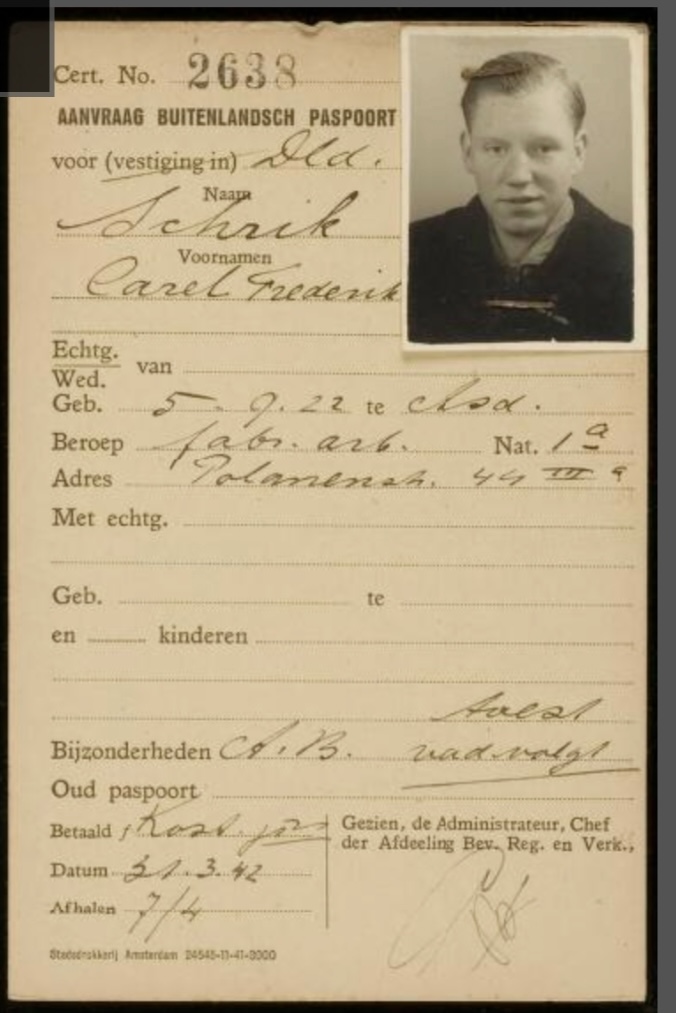 Cert. No. 2638
AANVRAAG BUITENLANDSCH PASPOORT
voor (vestiging in) Dld.
Naam
Schrik
Voornamen
Carel Frederik
Echtg.
Wed. van
Geb. 5-9.22 te Asd.
Beroep fabr. arb. Nat. 1a
Adres Polanenstr. 44 III
Met echtg.
Geb. te
en kinderen
Bijzonderheden A.B. vad volgt
Oud paspoort
Betaald f Kost.
Datum 31.3.42
Afhalen 7/4
Gezien, de Administrateur, Chef
der Afdeeling Bev. Reg. en Verk.,
Stadsdrukkerij Amsterdam 24545-11-41-3000